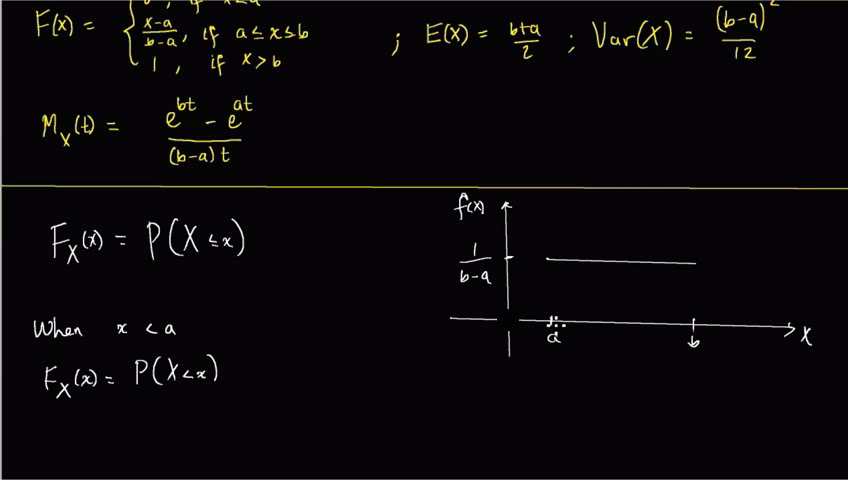 F(x) = { 0, if x<a
x-a/b-a, if a≤x≤b
1, if x>b
; E(X) = b+a/2 ; Var(X) = (b-a)²/12
M_X(t) = e^bt - e^at/(b-a)t
F_X(x) = P(X≤x)
When x < a
F_X(x) = P(X<x)
f(x)
1/b-a
a
b
X